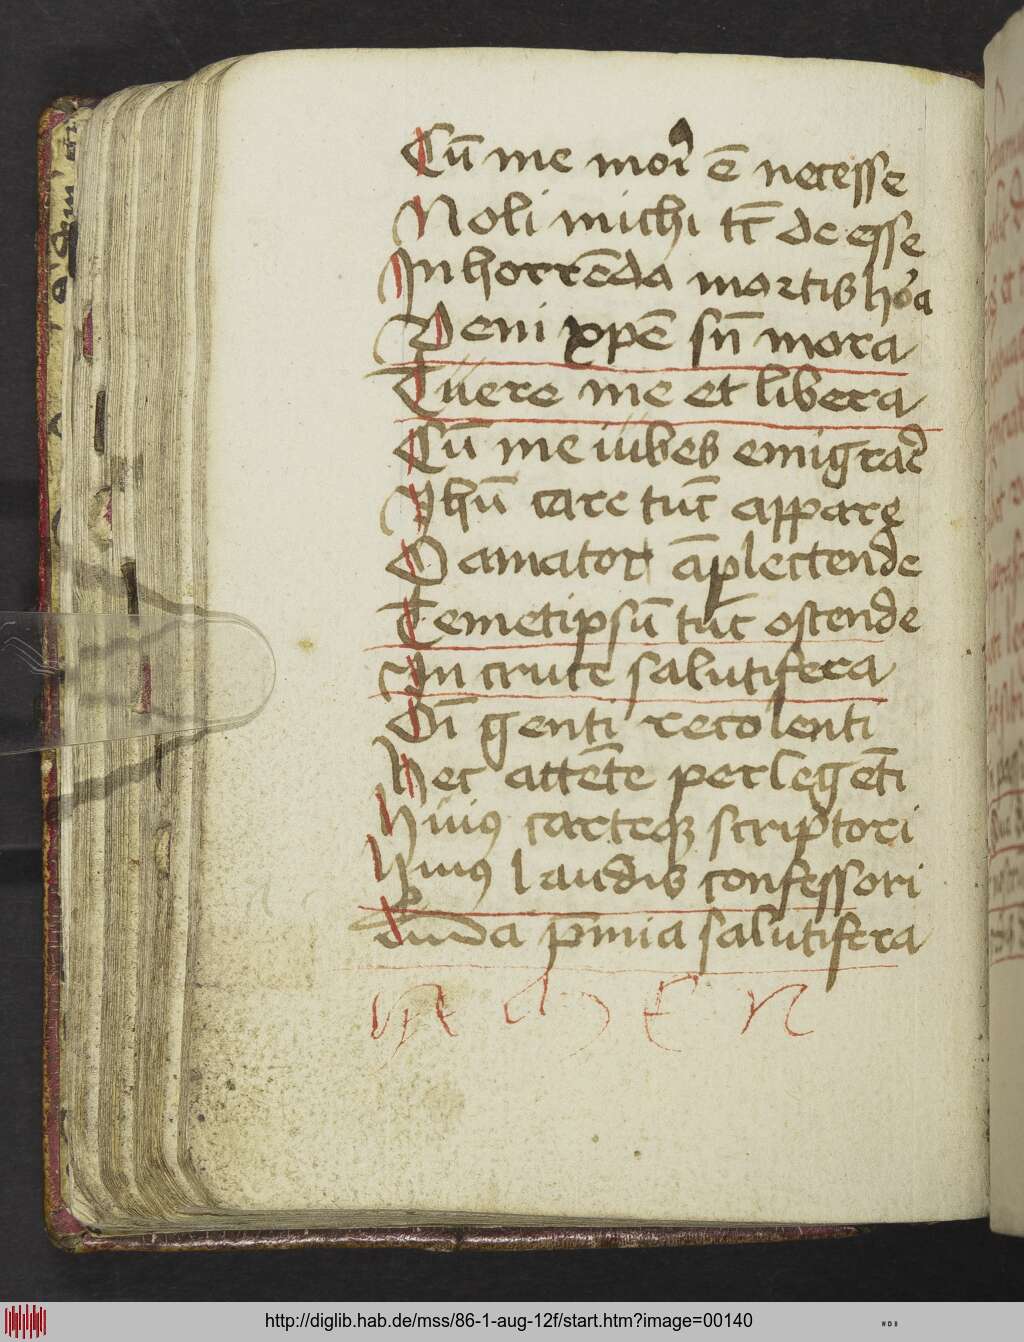 Cū me mori ē necesse
Noli michi tc̄ de esse
In horrēda mortis hora
Veni xp̄e sn̄ mora
Tuere me et libera
Cū me iubes emigrar̄
Ihū care tūc appare
O amator āplectende
Temetipsū tūc ostende
In cruce salutifera
Oī genti recolenti
Hec attēte perlegēti
Huiꝰ carteqꝫ scriptori
Huiꝰ laudis confessori
p̄mia salutifera
A M E N
http://diglib.hab.de/mss/86-1-aug-12f/start.htm?image=00140